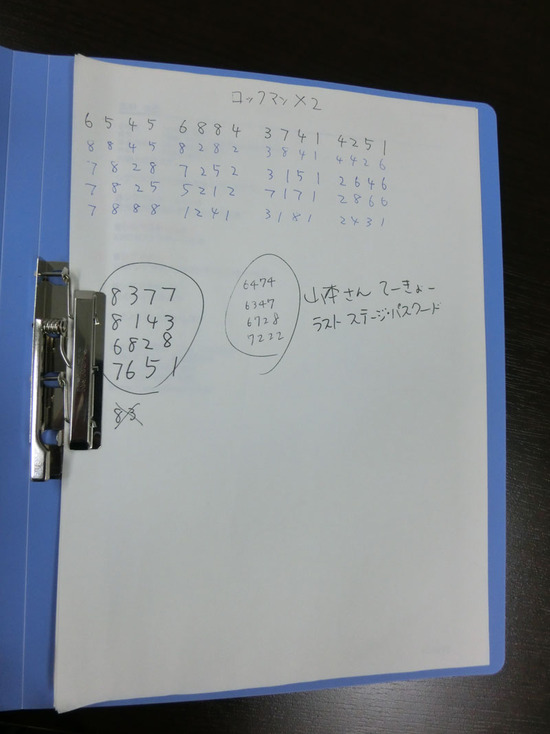 ロックマン X2
6545 6884 3741 4251
8845 8282 3841 4426
7828 7252 3151 2646
7825 5212 7171 2866
7888 1241 3181 2431
8377
8143
6828
7651
6474
6347
6728
7222
山本さん てーきょー
ラスト ステージ・パスワード
83